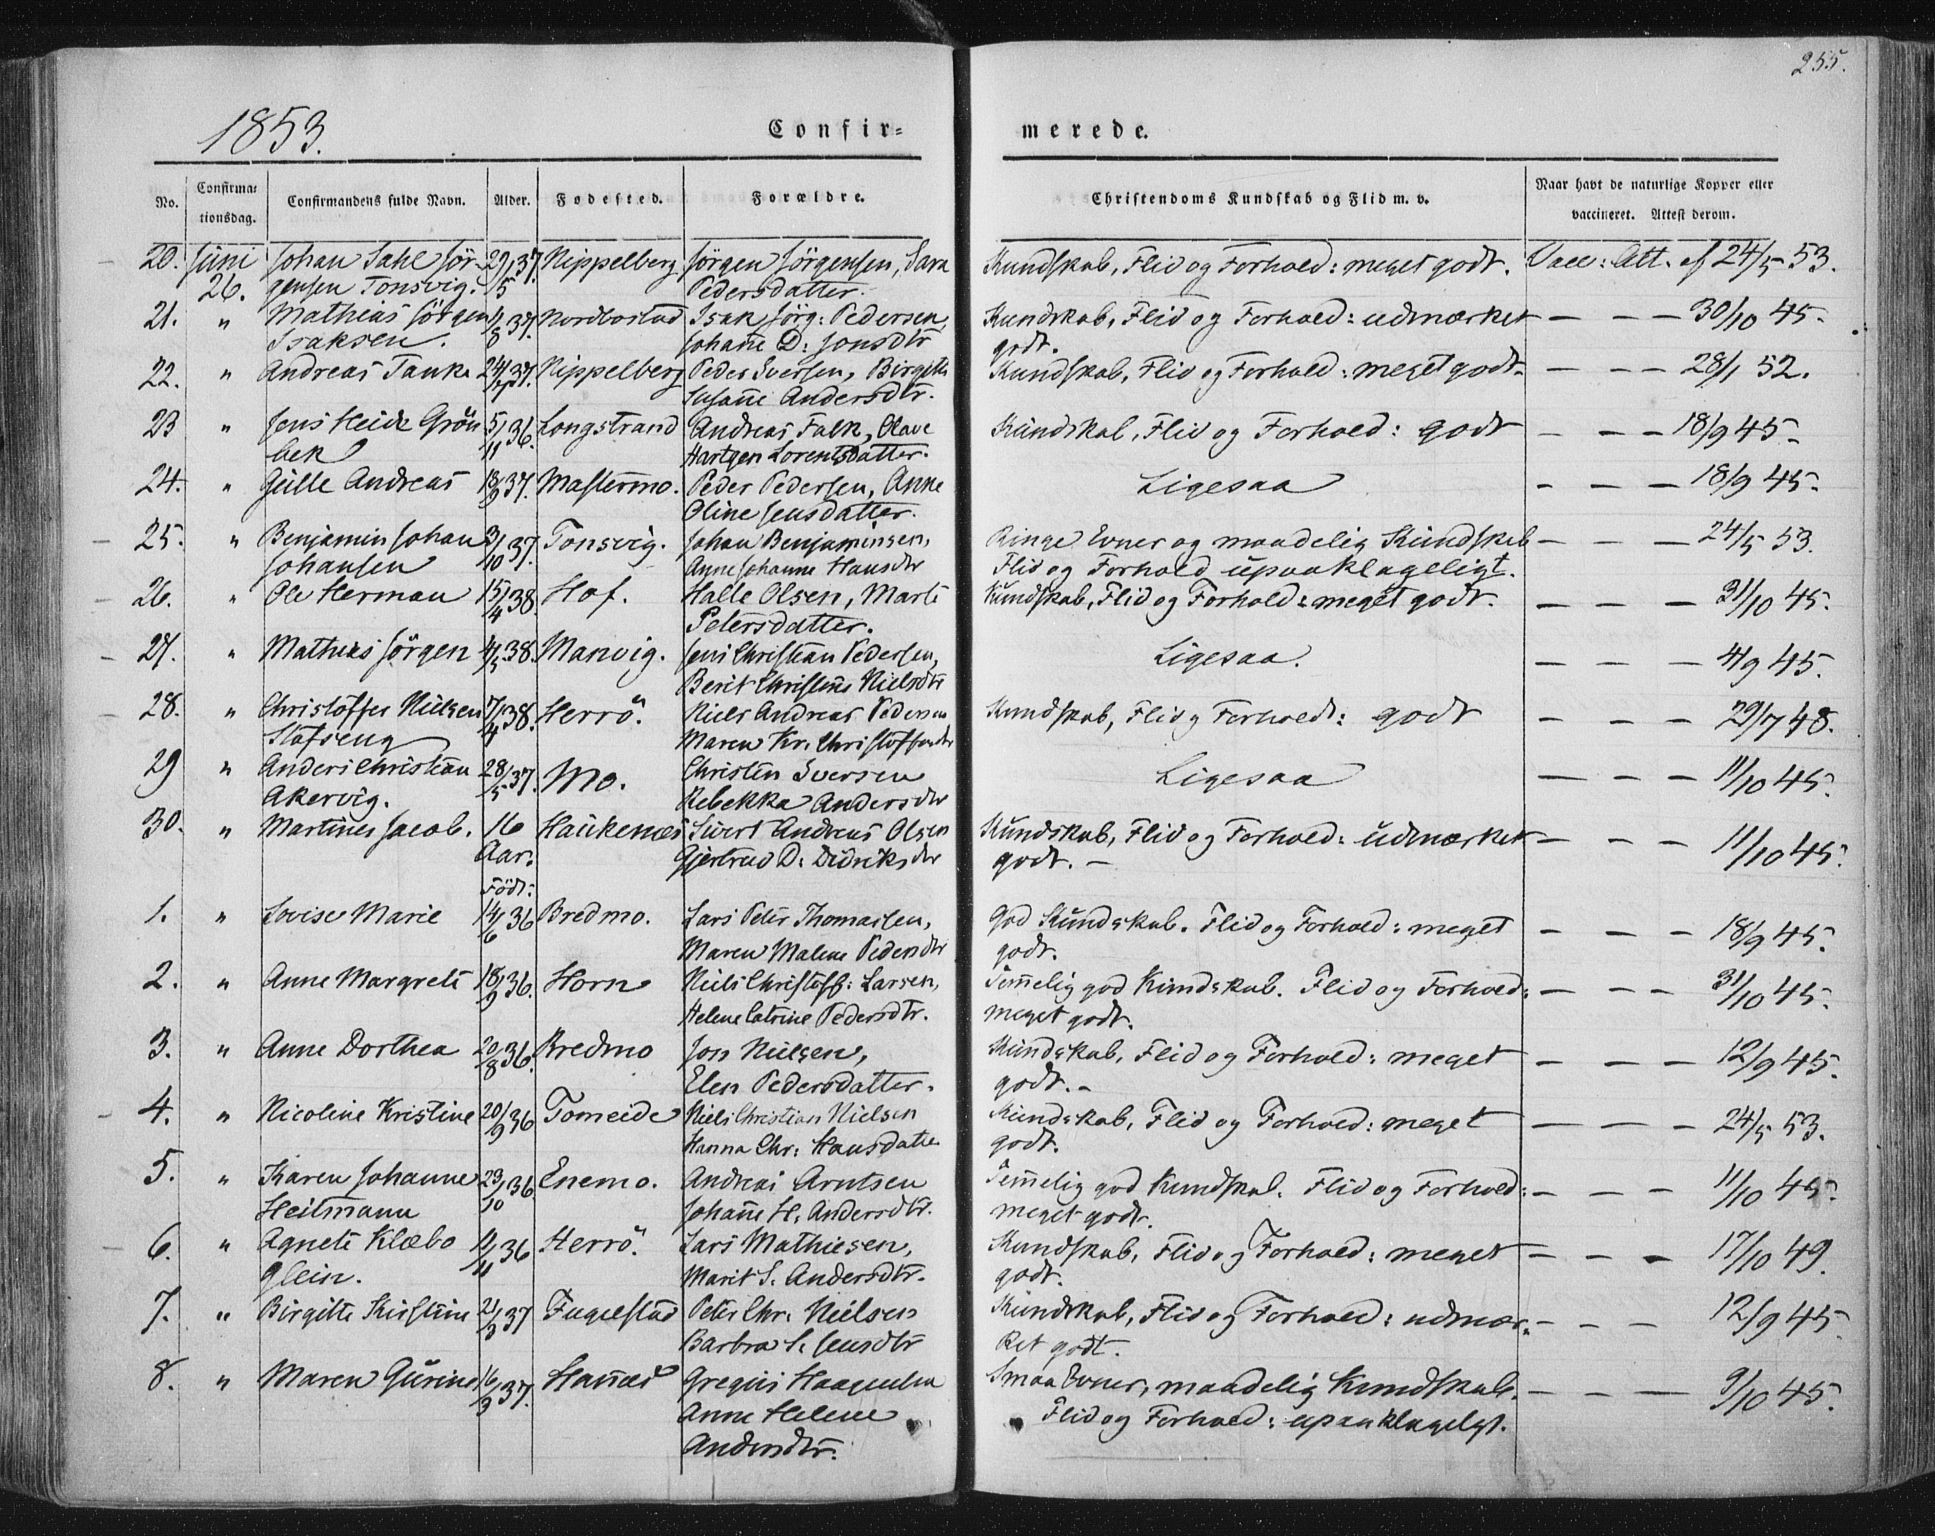 255.
1853.
Confir= merede.
No. Confirma= tionsdag. Confirmandens fulde Navn. Alder. Fødested. Forældre. Christendoms Kundskab og Flid m. v. Naar havt de naturlige Kopper eller vaccineret. Attest derom.
20. Juni Johan Sahl Jör- 29/5 37. Nippelberg Jörgen Jörgensen, Sara Kundskab, Flid og Forhold: meget godt. Vacc: Att. af 24/5 53.
26. gensen Tonsvig. Pedersdatter.
21. " Mathias Jörgen 4/8 37. Nordbostad Isak Jörg: Pedersen, Kundskab, Flid og Forhold: udmærket — — — 30/10 45.
Isaksen. Johane D: Jonsdtr godt.
22. " Andreas Tanke 24/7 37. Nippelberg Peder Iversen, Birgitte Kundskab, Flid og Forhold: meget godt. — — — 28/1 52.
Susane Andersdtr.
23 " Jens Heide Grön 5/11 36. Longstrand Andreas Falk, Olave Kundskab, Flid og Forhold: godt — — — 18/9 45.
bek Hartgen Lorentsdatter.
24. " Gülle Andreas 18/9 37. Mastermo. Peder Pedersen, Anne Ligesaa — — — 18/9 45.
Oline Jensdatter.
25. " Benjamin Johan 3/10 37. Tonsvig. Johan Benjaminsen, Ringe Evner og maadelig Kundskab — — — 24/5 53.
Johansen Anne Johanne Hansdtr Flid og Forhold upaaklageligt.
26. " Ole Herman 15/4 38. Hof. Halle Olsen, Marte Kundskab, Flid og Forhold: meget godt. — — — 31/10 45.
Petersdatter.
27. " Mathias Jörgen 4/5 38. Manvig. Jens Christian Pedersen, Ligesaa. — — — 4/9 45.
Berit Christine Nielsdtr
28. " Christoffer Nielsen 7/4 38. Herrö. Niels Andreas Pedersen Kundskab, Flid og Forhold: godt — — — 29/7 48.
Slofseng Maren Kr. Christoffersdtr
29 " Anders Christian 28/5 37. Mo. Christen Iversen Ligesaa — — — 11/10 45.
Akervig. Rebekka Andersdtr
30. " Martines Jacob. 16 Haukenæs Sivert Andreas Olsen Kundskab, Flid og Forhold: udmærket — — — 11/10 45.
Aar. Gjertrud D: Didriksdtr godt. —
Födt:
1. " Lovise Marie 14/6 36 Bredmo. Lars Peter Thomassen, God Kundskab. Flid og Forhold: meget — — — 18/9 45.
Maren Malene Pedersdtr godt.
2. " Anne Margrete 18/9 36. Horn Niels Christoff: Larsen, Temmelig god Kundskab. Flid og Forhold: — — — 31/10 45.
Helene Catrine Pedersdtr. meget godt.
3. " Anne Dorthea 20/8 36. Bredmo Jon Nielsen, Kundskab, Flid og Forhold: meget — — — 12/9 45.
Elen Pedersdatter. godt. —
4. " Nicoline Kristine 20/9 36 Tomeide Niels Christian Nielsen Kundskab, Flid og Forhold: meget — — — 24/5 53.
Hanna Chr: Hansdatter godt.
5. " Karen Johanne 23/10 36 Enemo. Andreas Arntsen Temmelig god Kundskab. Flid og Forhold: — — — 11/10 45.
Heitmann Johane H. Andersdtr. meget godt.
6. " Agnete Klæbo 11/11 36 Herrö. Lars Mathiesen, Kundskab, Flid og Forhold: meget — — — 17/10 49.
Glein. Marit S. Andersdtr. godt.
7. " Birgitte Kirstine 21/3 37 Fugelstad Peter Chr. Nielsen Kundskab, Flid og Forhold: udmær= — — — 12/9 45.
Barbra S. Jensdtr ket godt.
8. " Maren Gurine 16/3 37. Hanæs Gregus Haagensen Smaa Evner, maadelig Kundskab. — — — 9/10 45.
Anne Helene Flid og Forhold: upaaklageligt.
Andersdtr.